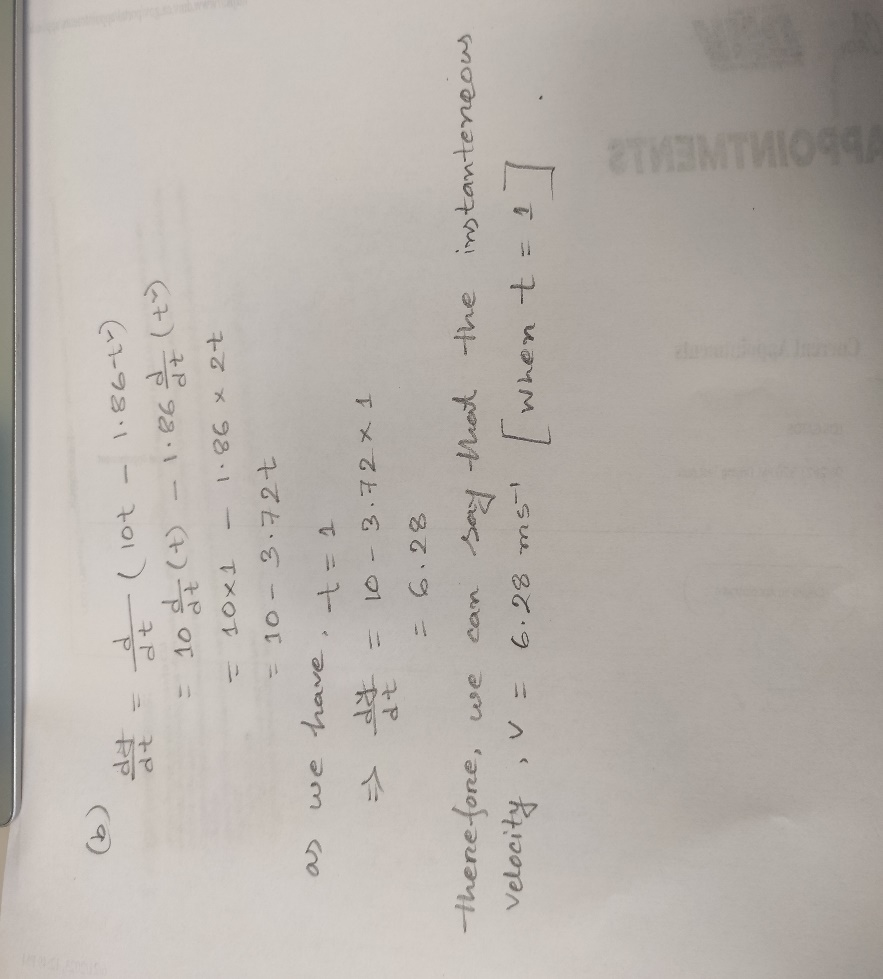 (b)
dy/dt = d/dt (10t - 1.86t²)
= 10 d/dt (t) - 1.86 d/dt (t²)
= 10×1 - 1.86 × 2t
= 10 - 3.72t
as we have, t = 1
⇒ dy/dt = 10 - 3.72 × 1
= 6.28
therefore, we can say that the instanteneous
velocity, v = 6.28 ms⁻¹ [when t = 1].
APPOINTMENTS
Current Appointments